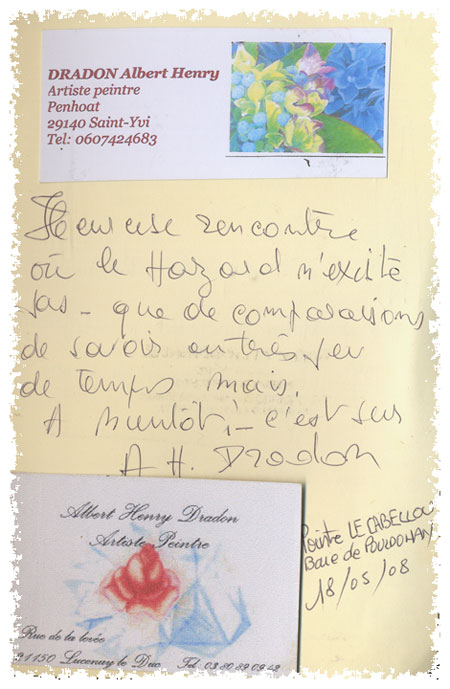 DRADON Albert Henry
Artiste peintre
Penhoat
29140 Saint-Yvi
Tel: 0607424683
Heureuse rencontre
où le Hazard n'existe
pas - que de comparaisons
de savoir en très peu
de temps mais.
A bientôt, - c'est sur
A H. Dradon
Pointe LE CABELLOU
Baie de POULDOHAN
18/05/08
Albert Henry Dradon
Artiste Peintre
Rue de la levée
21150 Lucenay le Duc Tel. 03 80